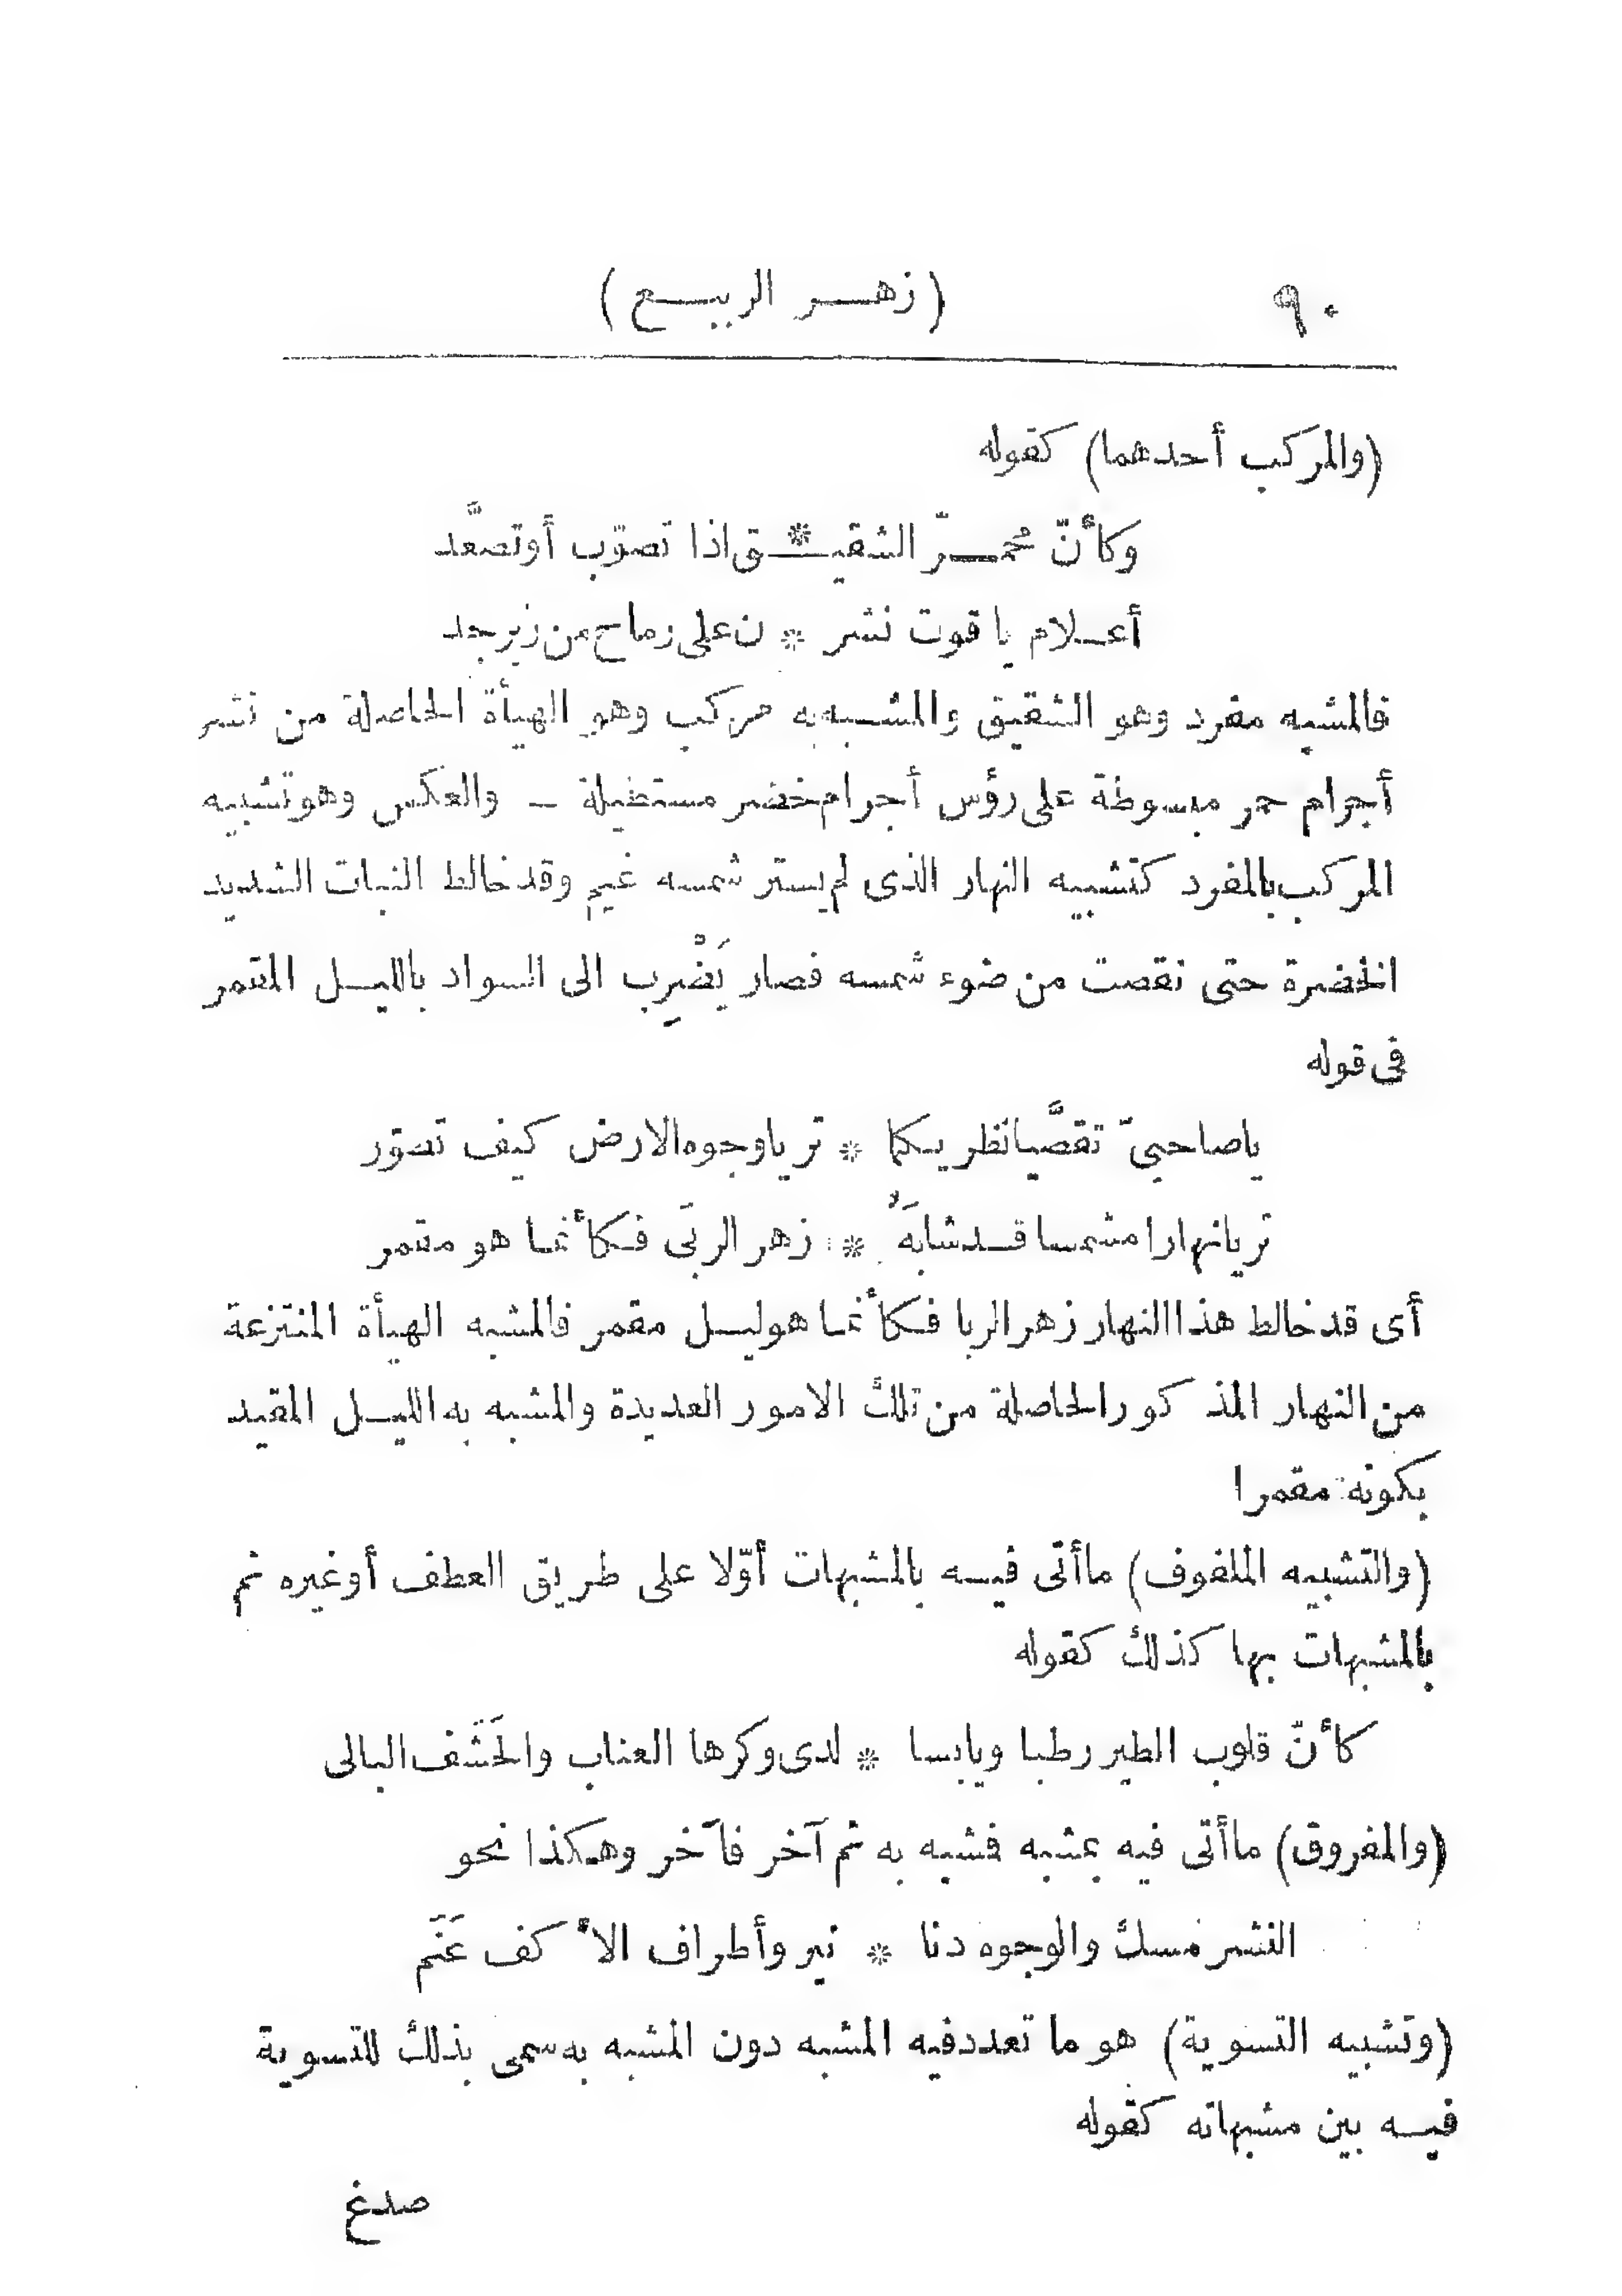 ٩٠ (زهر الربيع)
(والمركب أحدهما) كقوله
وكأنّ محمرّ الشقيـ * ـق اذا تصوّب أوتصعَّد
أعلام ياقوت نشر * ن على رماح من زبرجد
فالمشبه مفرد وهو الشقيق والمشبه به مركب وهو الهيأة الحاصلة من نشر
أجرام حمر مبسوطة على رؤس أجرام خضر مستطيلة ـ والعكس وهو تشبيه
المركب بالمفرد كتشبيه النهار الذى لم يستر شمسه غيم وقد خالط النبات الشديد
الخضرة حتى نقصت من ضوء شمسه فصار يَضْرِب الى السواد بالليل المقمر
فى قوله
ياصاحبىّ تقصَّيا نظريكما * تريا وجوه الارض كيف تصوّر
تريا نهارا مشمسا قد شابَهُ * زهر الربَى فكأنما هو مقمر
أى قد خالط هذا النهار زهر الربا فكأنما هو ليل مقمر فالمشبه الهيأة المنتزعة
من النهار المذكور الحاصلة من تلك الامور العديدة والمشبه به الليل المقيد
بكونه مقمرا
(والتشبيه الملفوف) ماأتى فيه بالمشبهات أوّلا على طريق العطف أوغيره ثم
بالمشبهات بها كذلك كقوله
كأنّ قلوب الطير رطبا ويابسا * لدى وكرها العناب والحَشَف البالى
(والمفروق) ماأتى فيه بمشبه فشبه به ثم آخر فآخر وهكذا نحو
النشر مسك والوجوه دنا * نير وأطراف الأكف عَنَم
(وتشبيه التسوية) هو ما تعدد فيه المشبه دون المشبه به سمى بذلك للتسوية
فيه بين مشبهاته كقوله
صدغ